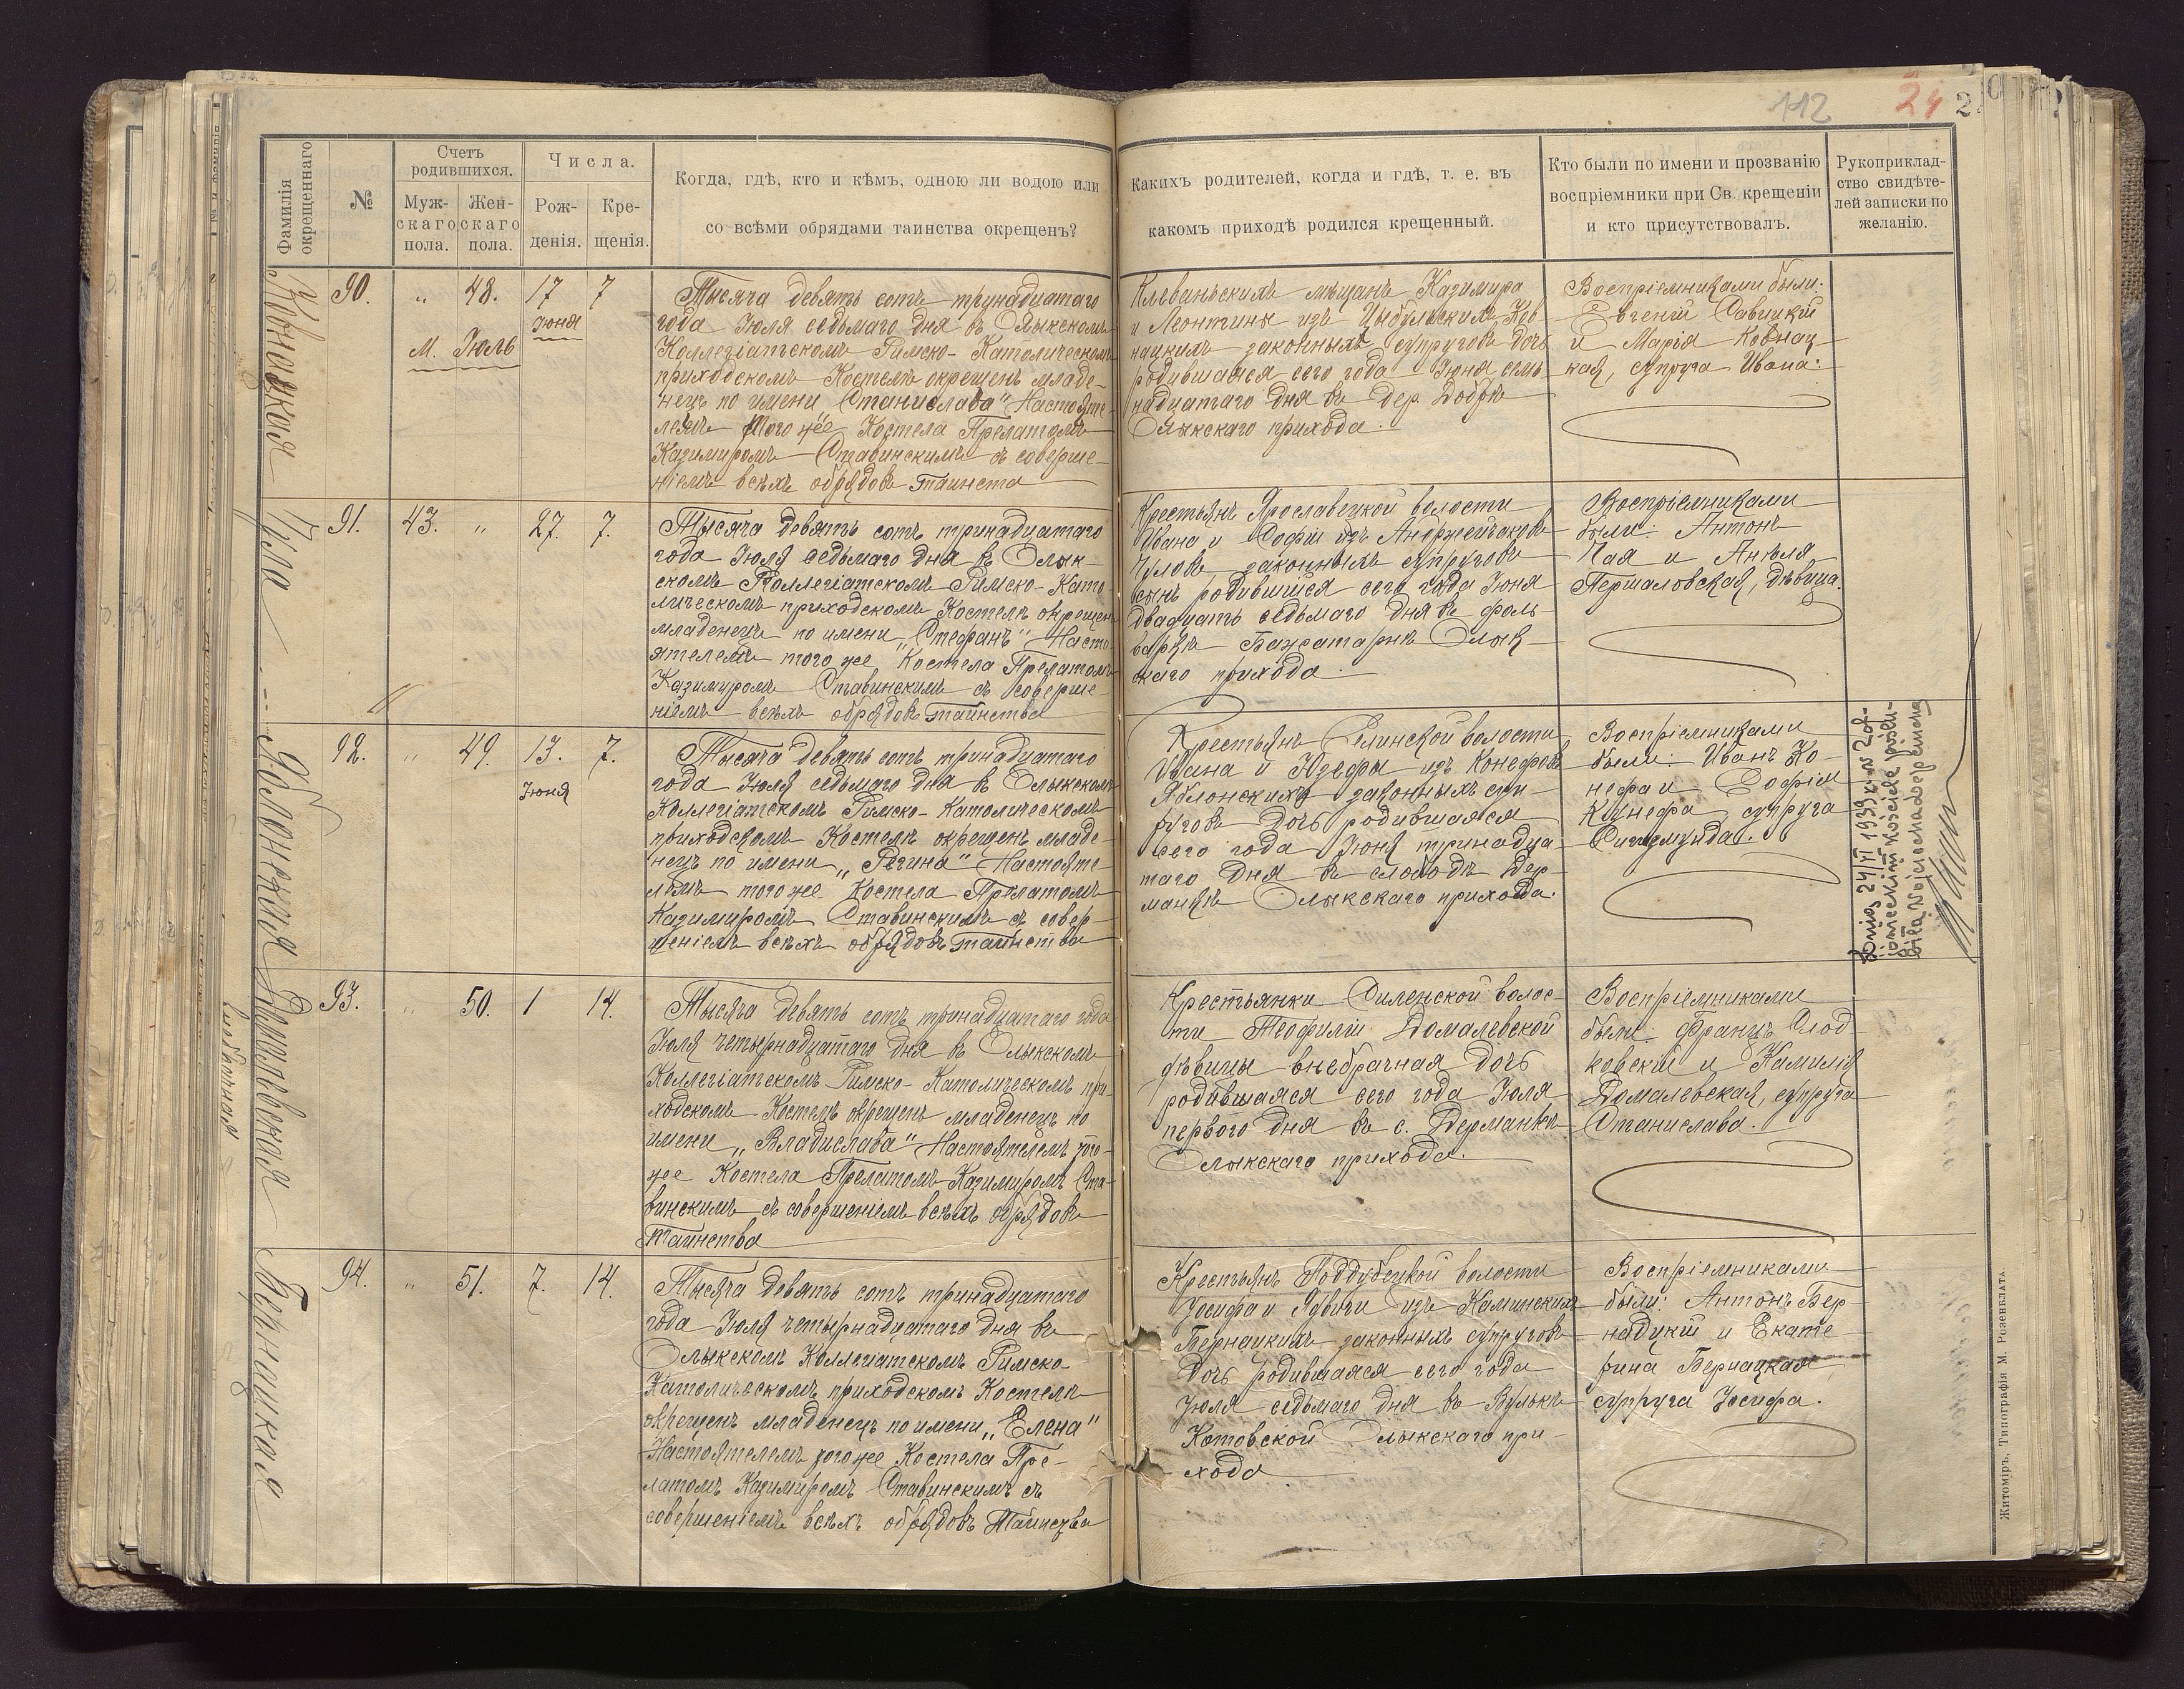 112
24
2
Фамилія окрещеннаго
№
Счетъ родившихся.
Муж-скаго пола.
Жен-скаго пола.
Числа.
Рож-денія.
Кре-щенія.
Когда, гдѣ, кто и кѣмъ, одною ли водою или
со всѣми обрядами таинства окрещенъ?
Какихъ родителей, когда и гдѣ, т. е. въ
какомъ приходѣ родился крещенный.
Кто были по имени и прозванію
воспріемники при Св. крещеніи
и кто присутствовалъ.
Рукоприклад-
ство свидѣте-
лей записки по
желанію.
Ковнацкая
90.
"
48.
17
7
Іюня
М. Іюль
Тысяча девять сотъ тринадцатаго
года Іюля седьмаго дня въ Олыкскомъ
Коллегіатскомъ Римско-Католическомъ
приходскомъ Костелѣ окрещенъ младе-
нецъ по имени „Станислава" Настояте-
лемъ того же Костела Прелатомъ
Казимиромъ Ставинскимъ съ соверше-
ніемъ всѣхъ обрядовъ таинства
Клеванскихъ мѣщанъ Казимира
и Леонтины изъ Цыбульскихъ Ков
нацкихъ законныхъ супруговъ дочь
родившаяся сего года Іюня семь
надцатаго дня въ дер. Добрѣ
Олыкскаго прихода.
Воспріемниками были:
Евгеній Савицкій
и Марія Ковнац
кая, супруга Ивана.
Чула
91.
43.
"
27.
7.
Тысяча девять сотъ тринадцатаго
года Іюля седьмаго дня въ Олык-
скомъ Коллегіатскомъ Римско-Като
лическомъ приходскомъ Костелѣ окрещенъ
младенецъ по имени „Стефанъ" Насто
ятелемъ того же Костела Прелатомъ
Казимиромъ Ставинскимъ съ соверше
ніемъ всѣхъ обрядовъ таинства
Крестьянъ Ярославецкой волости
Ивана и Софіи изъ Анджейчаковъ
Чуловъ законныхъ супруговъ
сынъ родившійся сего года Іюня
двадцать седьмаго дня въ фоль-
варкѣ Олык-
скаго прихода.
Воспріемниками
были: Антонъ
Чая и Анѣля
Першаловская, дѣвица.
Яблонская
92.
"
49.
13.
7.
Іюня
Тысяча девять сотъ тринадцатаго
года Іюля седьмаго дня въ Олыкскомъ
Коллегіатскомъ Римско-Католическомъ
приходскомъ Костелѣ окрещенъ младе-
нецъ по имени „Регина" Настояте-
лемъ того же Костела Прелатомъ
Казимиромъ Ставинскимъ съ совер-
шеніемъ всѣхъ обрядовъ таинства
Крестьянъ волости
Ивана и Юзефы изъ Конефовъ
Яблонскихъ законныхъ суп-
руговъ дочь родившаяся
сего года Іюня тринадца-
таго дня въ слободѣ Дер-
манкѣ Олыкскаго прихода.
Воспріемниками
были: Иванъ Ко-
нефа и Софія
Конефа супруга
Сигизмунда.
Dnia 24/VI 1939
Домалевская
внебрачная
93.
"
50.
1
14.
Тысяча девять сотъ тринадцатаго года
Іюля четырнадцатаго дня въ Олыкскомъ
Коллегіатскомъ Римско-Католическомъ при-
ходскомъ Костелѣ окрещенъ младенецъ по
имени „Владислава" Настоятелемъ того-
же Костела Прелатомъ Казимиромъ Ста-
винскимъ съ совершеніемъ всѣхъ обрядовъ
таинства
Крестьянки Силенской волос-
ти Теофиліи Домалевской
дѣвицы внебрачная дочь
родившаяся сего года Іюля
перваго дня въ с. Дерманкѣ
Олыкскаго прихода.
Воспріемниками
были: Францъ Слод
ковскій и Камилія
Домалевская, супруга
Станислава.
Бернацкая
94.
"
51.
7.
14.
Тысяча девять сотъ тринадцатаго
года Іюля четырнадцатаго дня въ
Олыкскомъ Коллегіатскомъ Римско-
Католическомъ приходскомъ Костелѣ
окрещенъ младенецъ по имени „Елена"
Настоятелемъ того же Костела Пре-
латомъ Казимиромъ Ставинскимъ съ
совершеніемъ всѣхъ обрядовъ Таинства
Крестьянъ Поддубецкой волости
Іосифа и Ядвиги изъ Каминскихъ
Бернацкихъ законныхъ супруговъ
дочь родившаяся сего года
Іюля седьмаго дня въ Вулькѣ
Котовской Олыкскаго при-
хода
Воспріемниками
были: Антонъ Бер-
нацкій и Екате-
рина Бернацкая
супруга Іосифа.
Житоміръ, Типографія М. Розенблата.